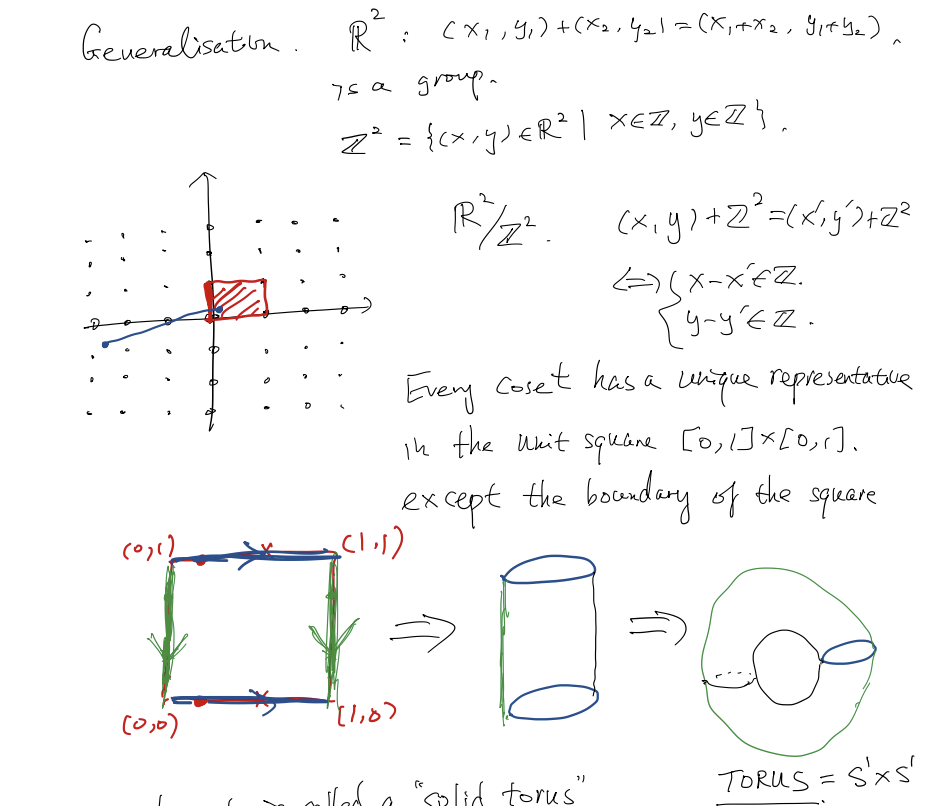 Generalisation. ℝ²: (x₁, y₁)+(x₂, y₂) = (x₁+x₂, y₁+y₂).
is a group.
ℤ² = {(x,y)∈ℝ² | x∈ℤ, y∈ℤ}.
ℝ²/ℤ². (x,y)+ℤ²=(x′,y′)+ℤ²
⟺ { x-x′∈ℤ.
y-y′∈ℤ.
Every coset has a unique representative
in the unit square [0,1]×[0,1].
except the boundary of the square
(0,1) (1,1)
⇒ ⇒
(0,0) (1,0)
TORUS = S¹×S¹
called a "solid torus"